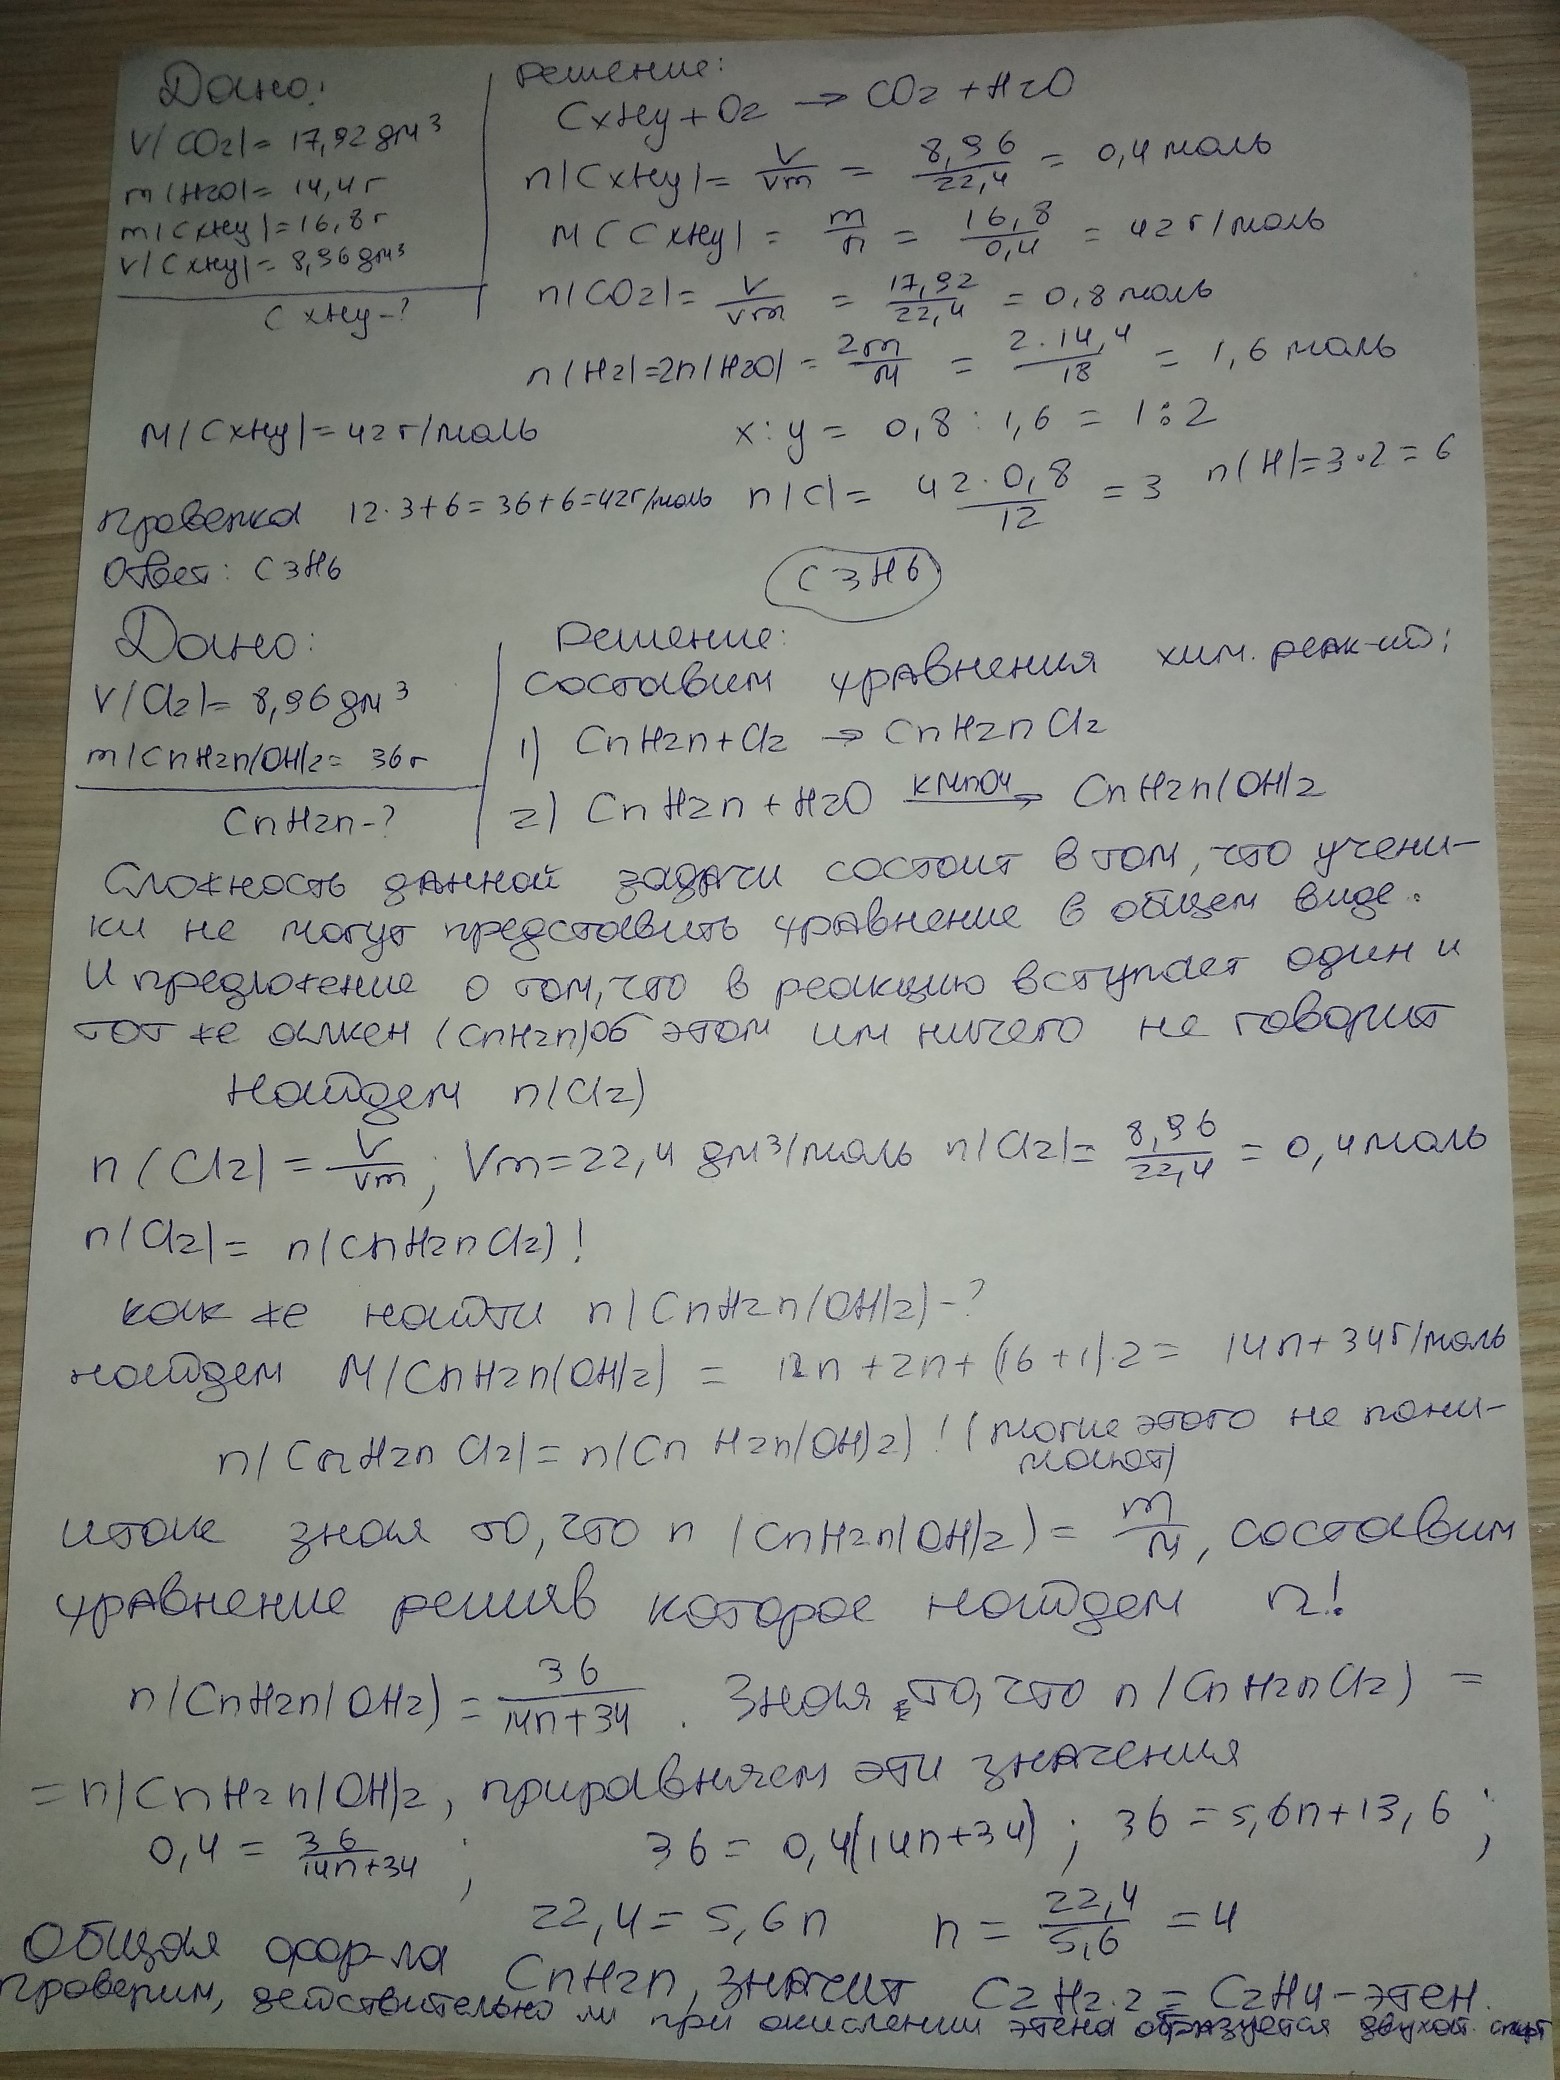 Дано:
V(CO2)= 17,92 дм³
m(H2O)= 14,4 г
m(CxHy)= 16,8 г
V(CxHy)= 8,96 дм³
CxHy-?
Решение:
CxHy + O2 → CO2 + H2O
n(CxHy)= V/Vm = 8,96/22,4 = 0,4 моль
M(CxHy) = m/n = 16,8/0,4 = 42 г/моль
n(CO2)= V/Vm = 17,92/22,4 = 0,8 моль
n(H2)=2n(H2O)= 2m/M = 2·14,4/18 = 1,6 моль
M(CxHy)= 42 г/моль x:y = 0,8 : 1,6 = 1:2
Проверка 12·3+6=36+6=42г/моль n(C)= 42·0,8/12 = 3 n(H)=3·2=6
Ответ: C3H6
C3H6
Дано:
V(Cl2)= 8,96 дм³
m(CnH2n(OH)2= 36 г
CnH2n-?
Решение:
Составим уравнения хим. реак-ий:
1) CnH2n + Cl2 → CnH2nCl2
2) CnH2n + H2O KMnO4→ CnH2n(OH)2
Сложность данной задачи состоит в том, что учени-
ки не могут представить уравнение в общем виде.
И предложение о том, что в реакцию вступает один и
тот же алкен (CnH2n) об этом им ничего не говорит
Найдем n(Cl2)
n(Cl2)= V/Vm ; Vm=22,4 дм³/моль n(Cl2)= 8,96/22,4 = 0,4 моль
n(Cl2)= n(CnH2nCl2)!
как же найти n(CnH2n(OH)2)-?
найдем M(CnH2n(OH)2) = 12n + 2n + (16+1)·2 = 14n+34г/моль
n(CnH2nCl2)= n(CnH2n(OH)2)! (могие этого не пони-
мают)
итак зная то, что n(CnH2n(OH)2)= m/M, составим
уравнение решив которое найдем n!
n(CnH2n(OH2)= 36/14n+34. Зная то, что n(CnH2nCl2) =
= n(CnH2n(OH)2, приравняем эти значения
0,4 = 36/14n+34 ; 36 = 0,4(14n+34) ; 36 = 5,6n+13,6 ;
22,4 = 5,6n n = 22,4/5,6 = 4
Общая фор-ла CnH2n, значит C2H2·2 = C2H4-этен.
Проверим, действительно ли при окислении этена образуется двухат. спирт